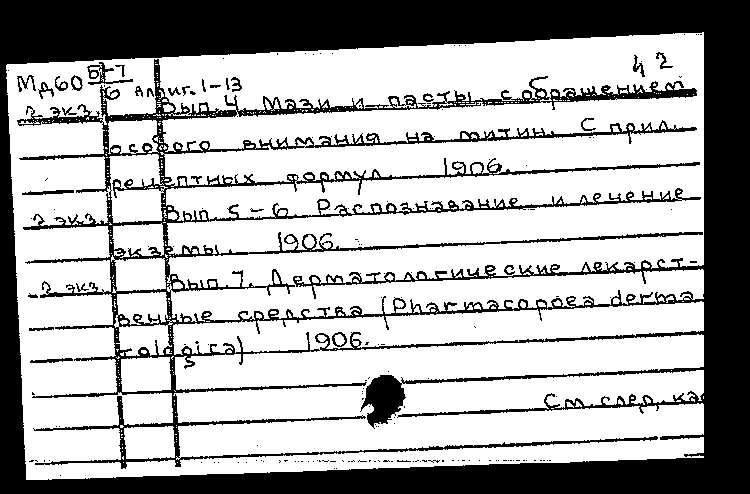 42
Мд60 Б-7/6 Аллиг. 1-13
2 экз. Вып. 4. Мази и пасты с обращением
особого внимания на митин. С прил.
рецептных формул. 1906.
2 экз. Вып. 5-6. Распознавание и лечение
экземы. 1906.
2 экз. Вып. 7. Дерматологические лекарст-
венные средства (Pharmacopoea derma
tologica) 1906.
См. след. ка